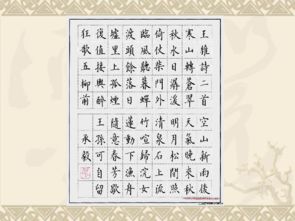 王維詩二首
寒山轉蒼翠
秋水日潺湲
倚杖柴門外
臨風聽暮蟬
渡頭餘落日
墟里上孤煙
復值接輿醉
狂歌五柳前
空山新雨後
天氣晚來秋
明月松間照
清泉石上流
竹喧歸浣女
蓮動下漁舟
隨意春芳歇
王孫可自留
承毅